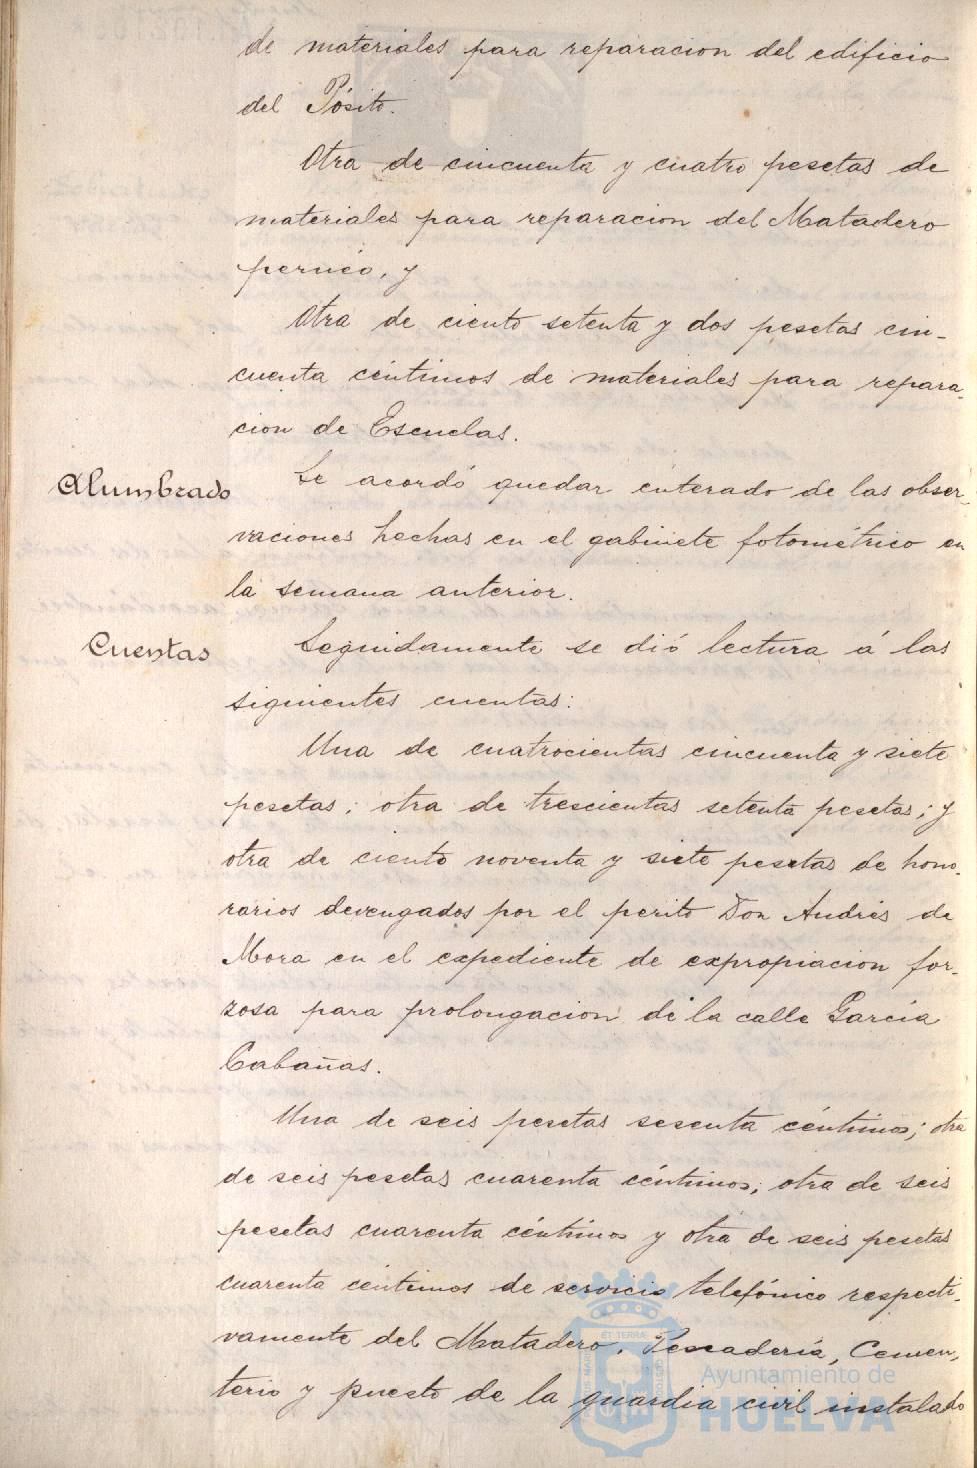 de materiales para reparacion del edificio
del Pósito.
Otra de cincuenta y cuatro pesetas de
materiales para reparacion del Matadero
pernéo, y
Otra de ciento setenta y dos pesetas cin-
cuenta céntimos de materiales para repara-
cion de Escuelas.
Alumbrado
Se acordó quedar enterado de las obser-
vaciones hechas en el gabinete fotométrico en
la semana anterior.
Cuentas
Seguidamente se dió lectura á las
siguientes cuentas:
Una de cuatrocientas cincuenta y siete
pesetas; otra de trescientas setenta pesetas; y
otra de ciento noventa y siete pesetas de hono-
rarios devengados por el perito Don Andrés de
Mora en el expediente de expropiacion for-
zosa para prolongacion de la calle García
Cabañas.
Una de seis pesetas sesenta céntimos; otra
de seis pesetas cuarenta céntimos; otra de seis
pesetas cuarenta céntimos y otra de seis pesetas
cuarenta céntimos de servicio telefónico respecti-
vamente del Matadero, Pescadería, Cemen-
terio y puesto de la guardia civil instalado
Ayuntamiento de
HUELVA